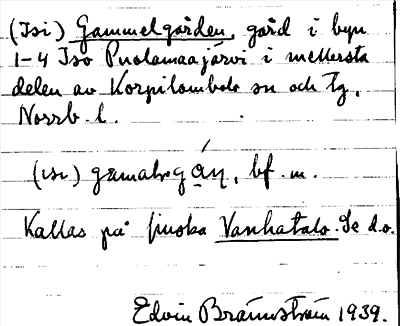 (Isi) Gammelgården, gård i byn
1-4 Iso Puolamaajärvi i mellersta
delen av Korpilombolo sn och tg,
Norrb. l.
(isi) bf. m.
Kallas på finska Vanhatalo. Se d.o.
Edvin Brännström 1939.